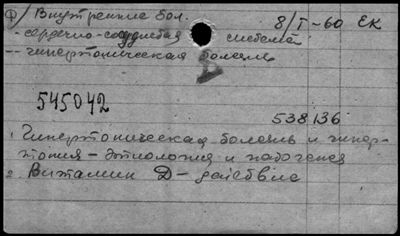 1) Внутренние бол. 8/I-60 ЕК
- сердечно-сосудистая система
-- гипертоническая болезнь
545042
538136
1. Гипертоническая болезнь и гипер-
тония - этиология и патогенез
2. Витамин Д - действие